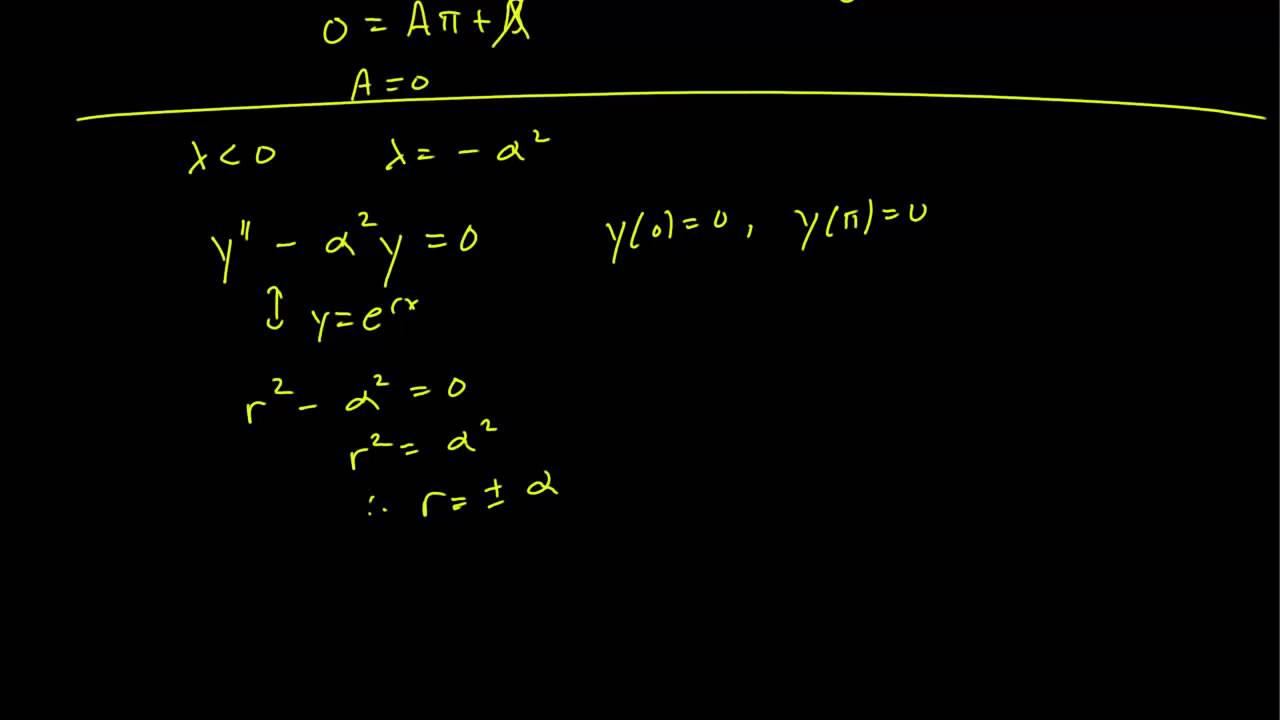 0 = Aπ +
A = 0
λ < 0 λ = - α²
y" - α² y = 0 y(0) = 0, y(π) = 0
↕ y = e^{rx}
r² - α² = 0
r² = α²
∴ r = ± α